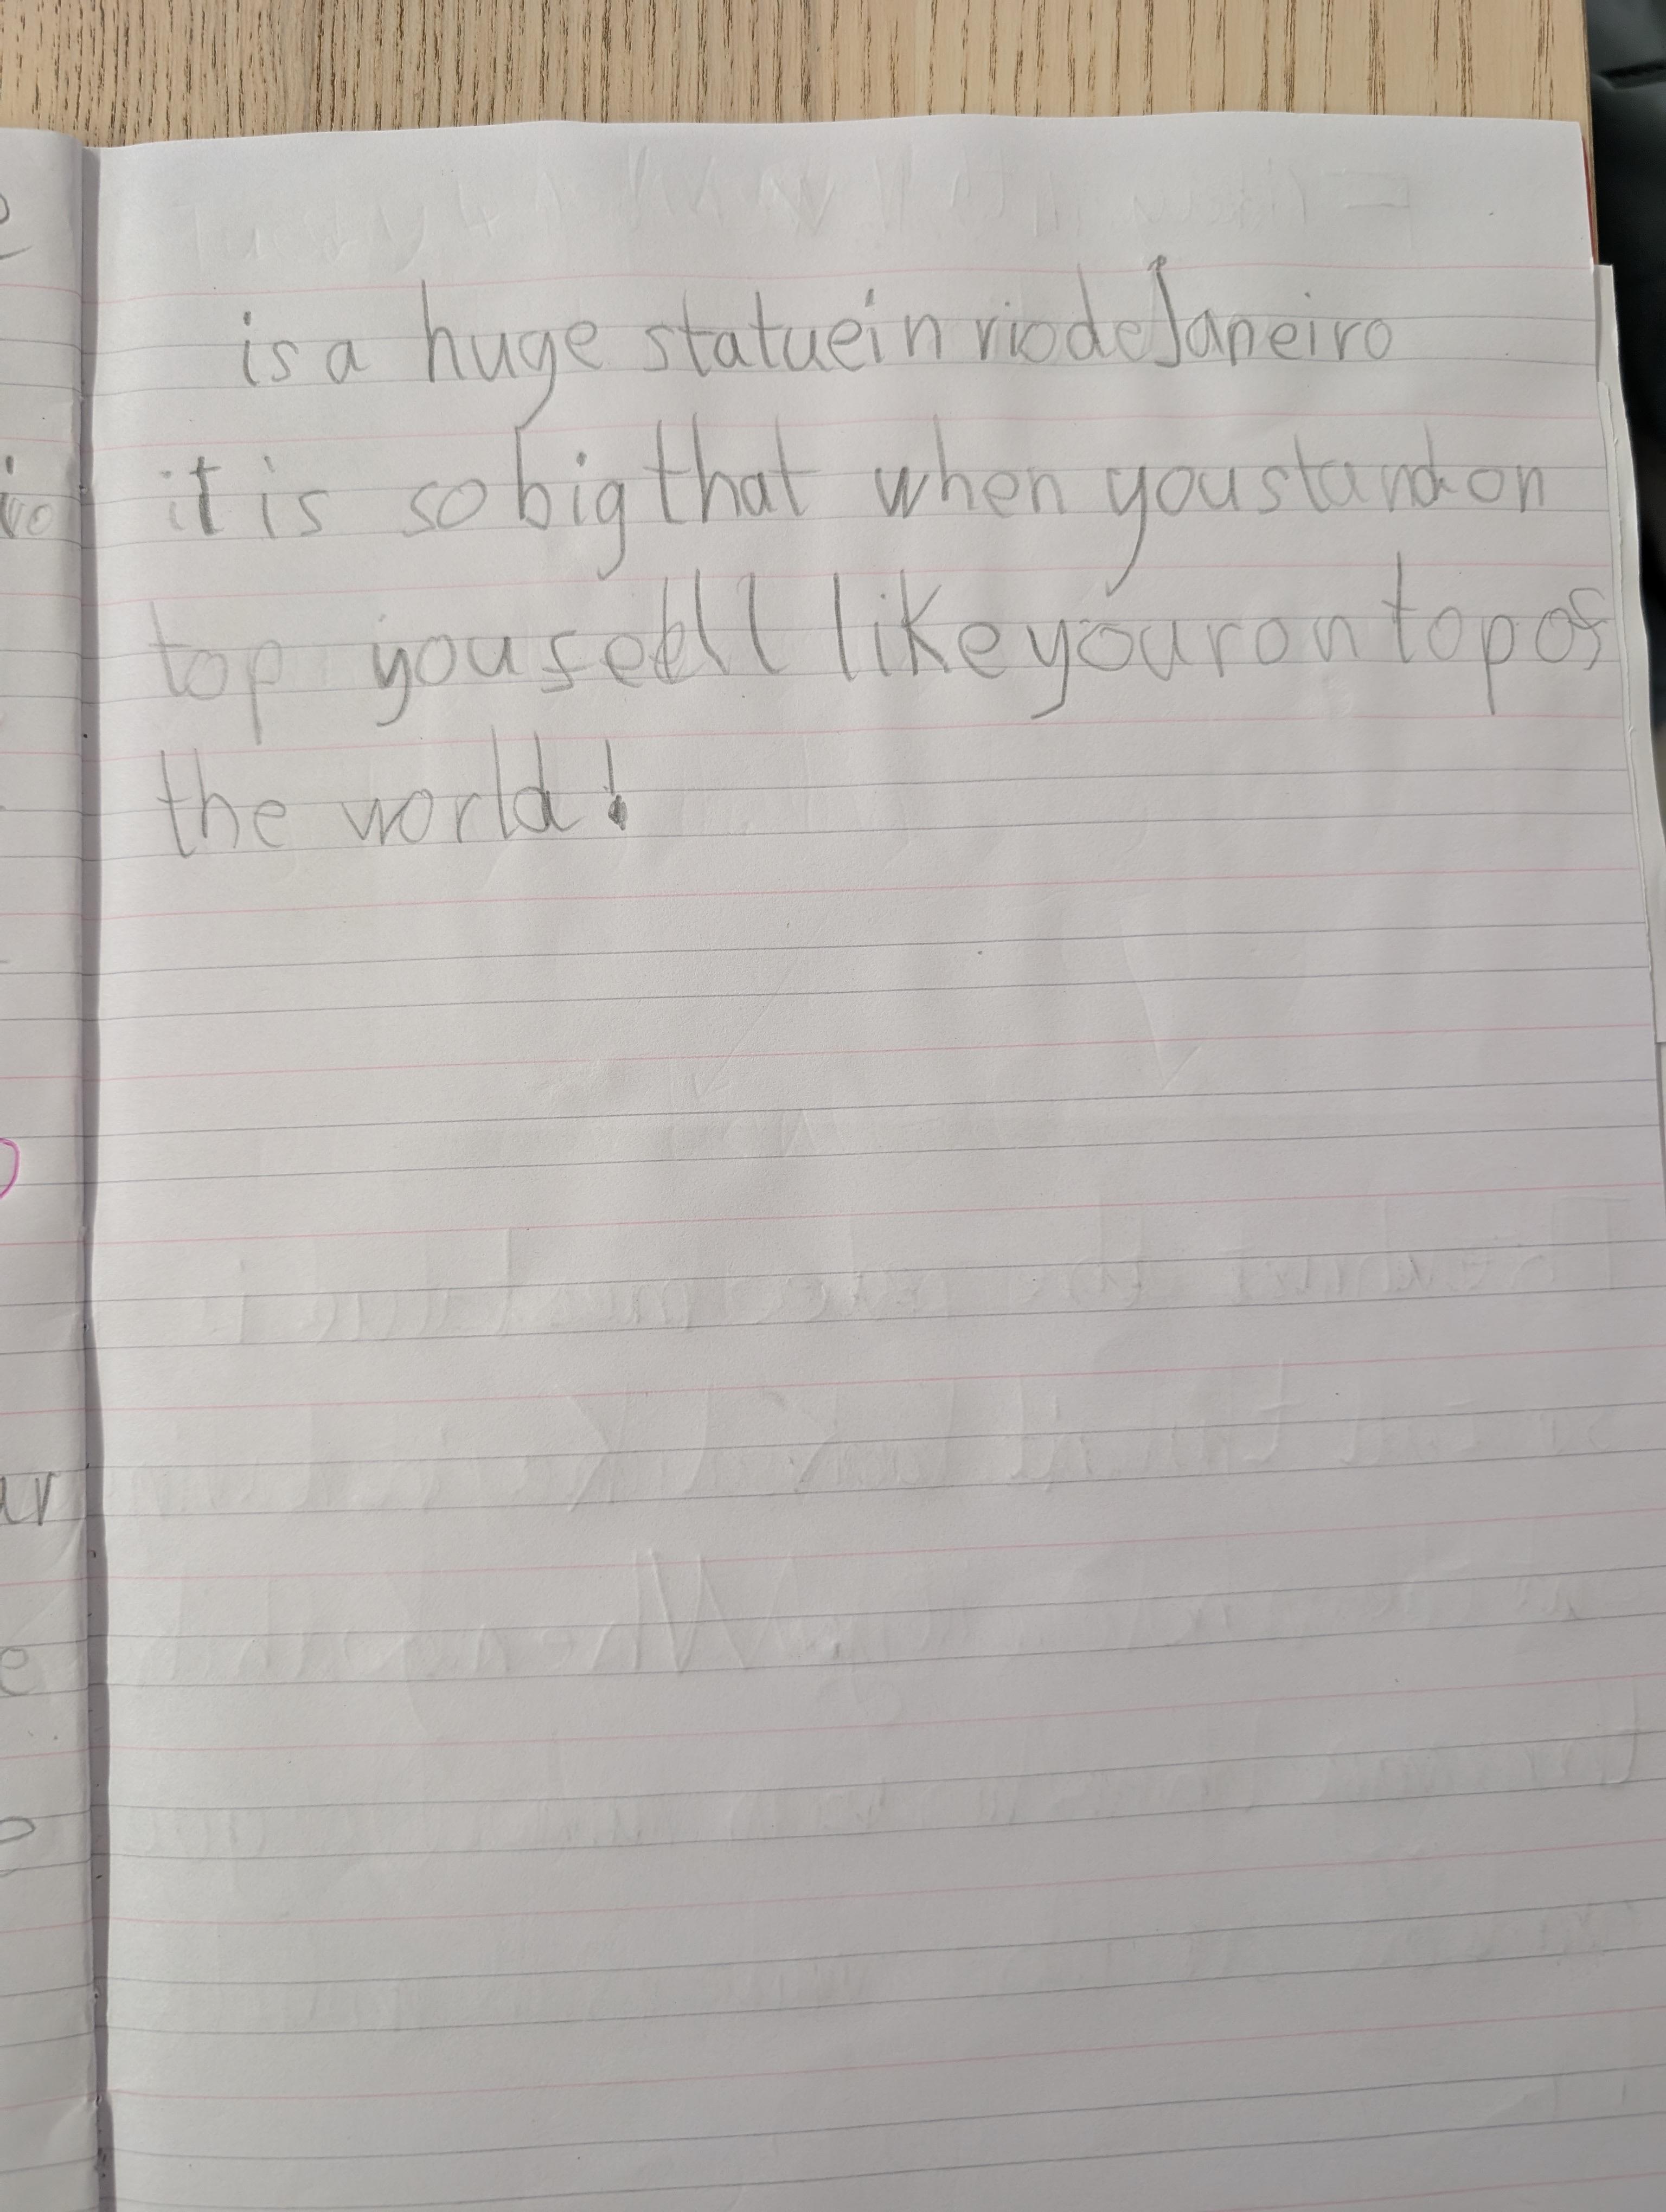 is a huge statuein riodeJaneiro
it is so big that when you stand on
top you feell like your on top of
the world!